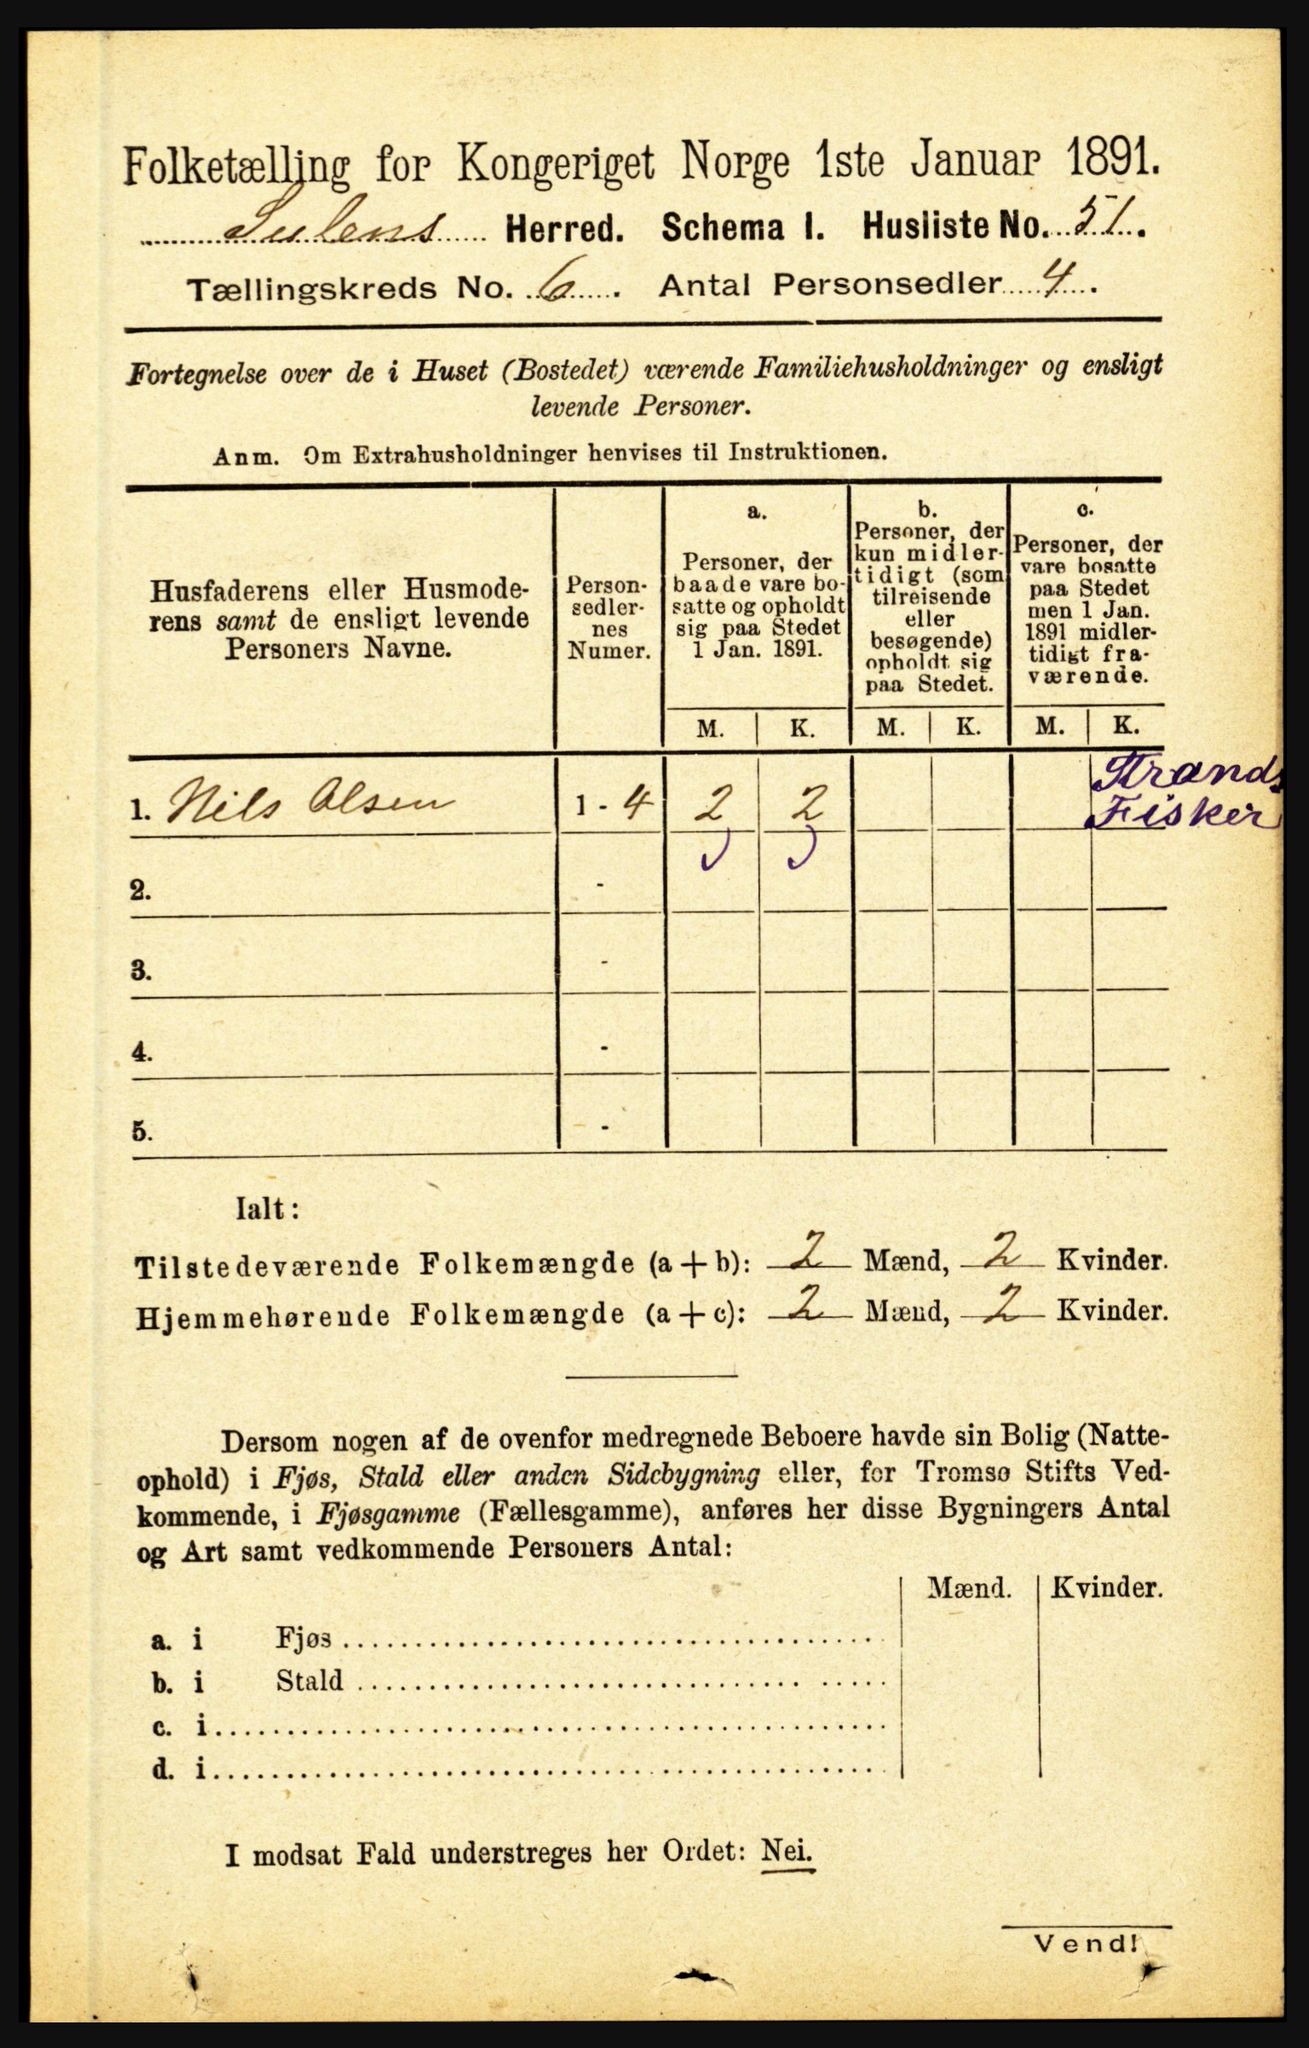 Folketælling for Kongeriget Norge 1ste Januar 1891.
Sulens Herred. Schema I. Husliste No. 51.
Tællingskreds No. 6. Antal Personsedler 4.
Fortegnelse over de i Huset (Bostedet) værende Familiehusholdninger og ensligt
levende Personer.
Anm. Om Extrahusholdninger henvises til Instruktionen.
Husfaderens eller Husmode-
rens samt de ensligt levende
Personers Navne.
Person-
sedler-
nes
Numer.
a.
Personer, der
baade vare bo-
satte og opholdt
sig paa Stedet
1 Jan. 1891.
b.
Personer, der
kun midler-
tidigt (som
tilreisende
eller
besøgende)
opholdt sig
paa Stedet.
c.
Personer, der
vare bosatte
paa Stedet
men 1 Jan.
1891 midler-
tidigt fra-
værende.
M. K. M. K. M. K.
1. Nils Olsen 1 - 4 2 2 Strands
Fisker
2. -
3. -
4. -
5. -
Ialt:
Tilstedeværende Folkemængde (a + b): 2 Mænd, 2 Kvinder.
Hjemmehørende Folkemængde (a + c): 2 Mænd, 2 Kvinder.
Dersom nogen af de ovenfor medregnede Beboere havde sin Bolig (Natte-
ophold) i Fjøs, Stald eller anden Sidebygning eller, for Tromsø Stifts Ved-
kommende, i Fjøsgamme (Fællesgamme), anføres her disse Bygningers Antal
og Art samt vedkommende Personers Antal:
Mænd. Kvinder.
a. i Fjøs
b. i Stald
c. i
d. i
I modsat Fald understreges her Ordet: Nei.
Vend!